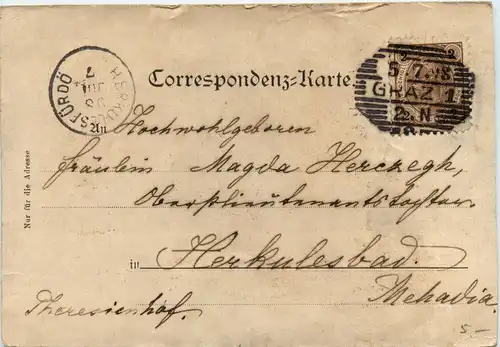 HERKULESFÜRDŐ
98 JUL. 7
2 2
5 7.98
GRAZ 1
2. N
Correspondenz-Karte.
An Hochwohlgeboren
Fräulein Magda Herczegh,
Oberstlieutenantstochter
Nur für die Adresse
in Herkulesbad.
Mehadia.
Theresienhof.
5-